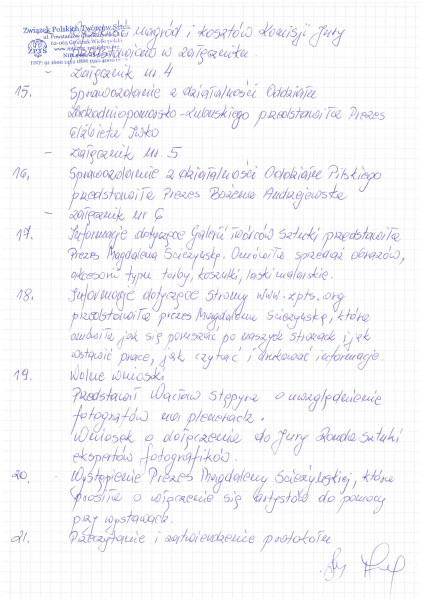 Związek Polskich Twórców Sztuki
nagród i kosztów Komisji Jury
ul. Powstańców
62-065 Grodzisk Wielkopolski
przedstawiono w załączniku
ZPTS
- załącznik nr. 4
15. Sprawozdanie z działalności Oddziału
Zachodniopomorsko-Lubuskiego przedstawiła Prezes
Elżbieta
- załącznik nr. 5
16. Sprawozdanie z działalności Oddziału Pilskiego
przedstawiła Prezes Bożena Andrzejewska
- załącznik nr 6
17. Informacje dotyczące Galerii Twórców Sztuki przedstawiła
Prezes Magdalena Ścieżyńska. Omówiła sprzedaż obrazów,
akcesorii typu torby, koszulki, laski malarskie.
18. Informacje dotyczące strony www.zpts.org
przedstawiła prezes Magdalena Ścieżyńska, która
omówiła jak się poruszać po naszych stronach, i jak
wstawić prace, jak czytać i drukować informacje.
19. Wolne wnioski
Przedstawił Wacław Stępyra o uwzględnienie
fotografów na plenerach.
Wniosek o dołączenie do Jury Ronda Sztuki
ekspertów fotografików.
20. Wystąpienie Prezes Magdaleny Ścieżyńskiej, która
prosiła o włączenie się artystów do pomocy
przy wystawach.
21. Przeczytanie i zatwierdzenie protokołu